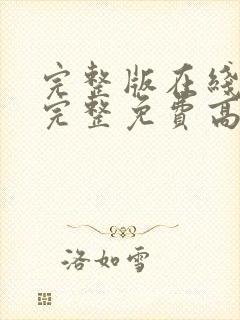 完整版在线
完整免费高
洛如雪